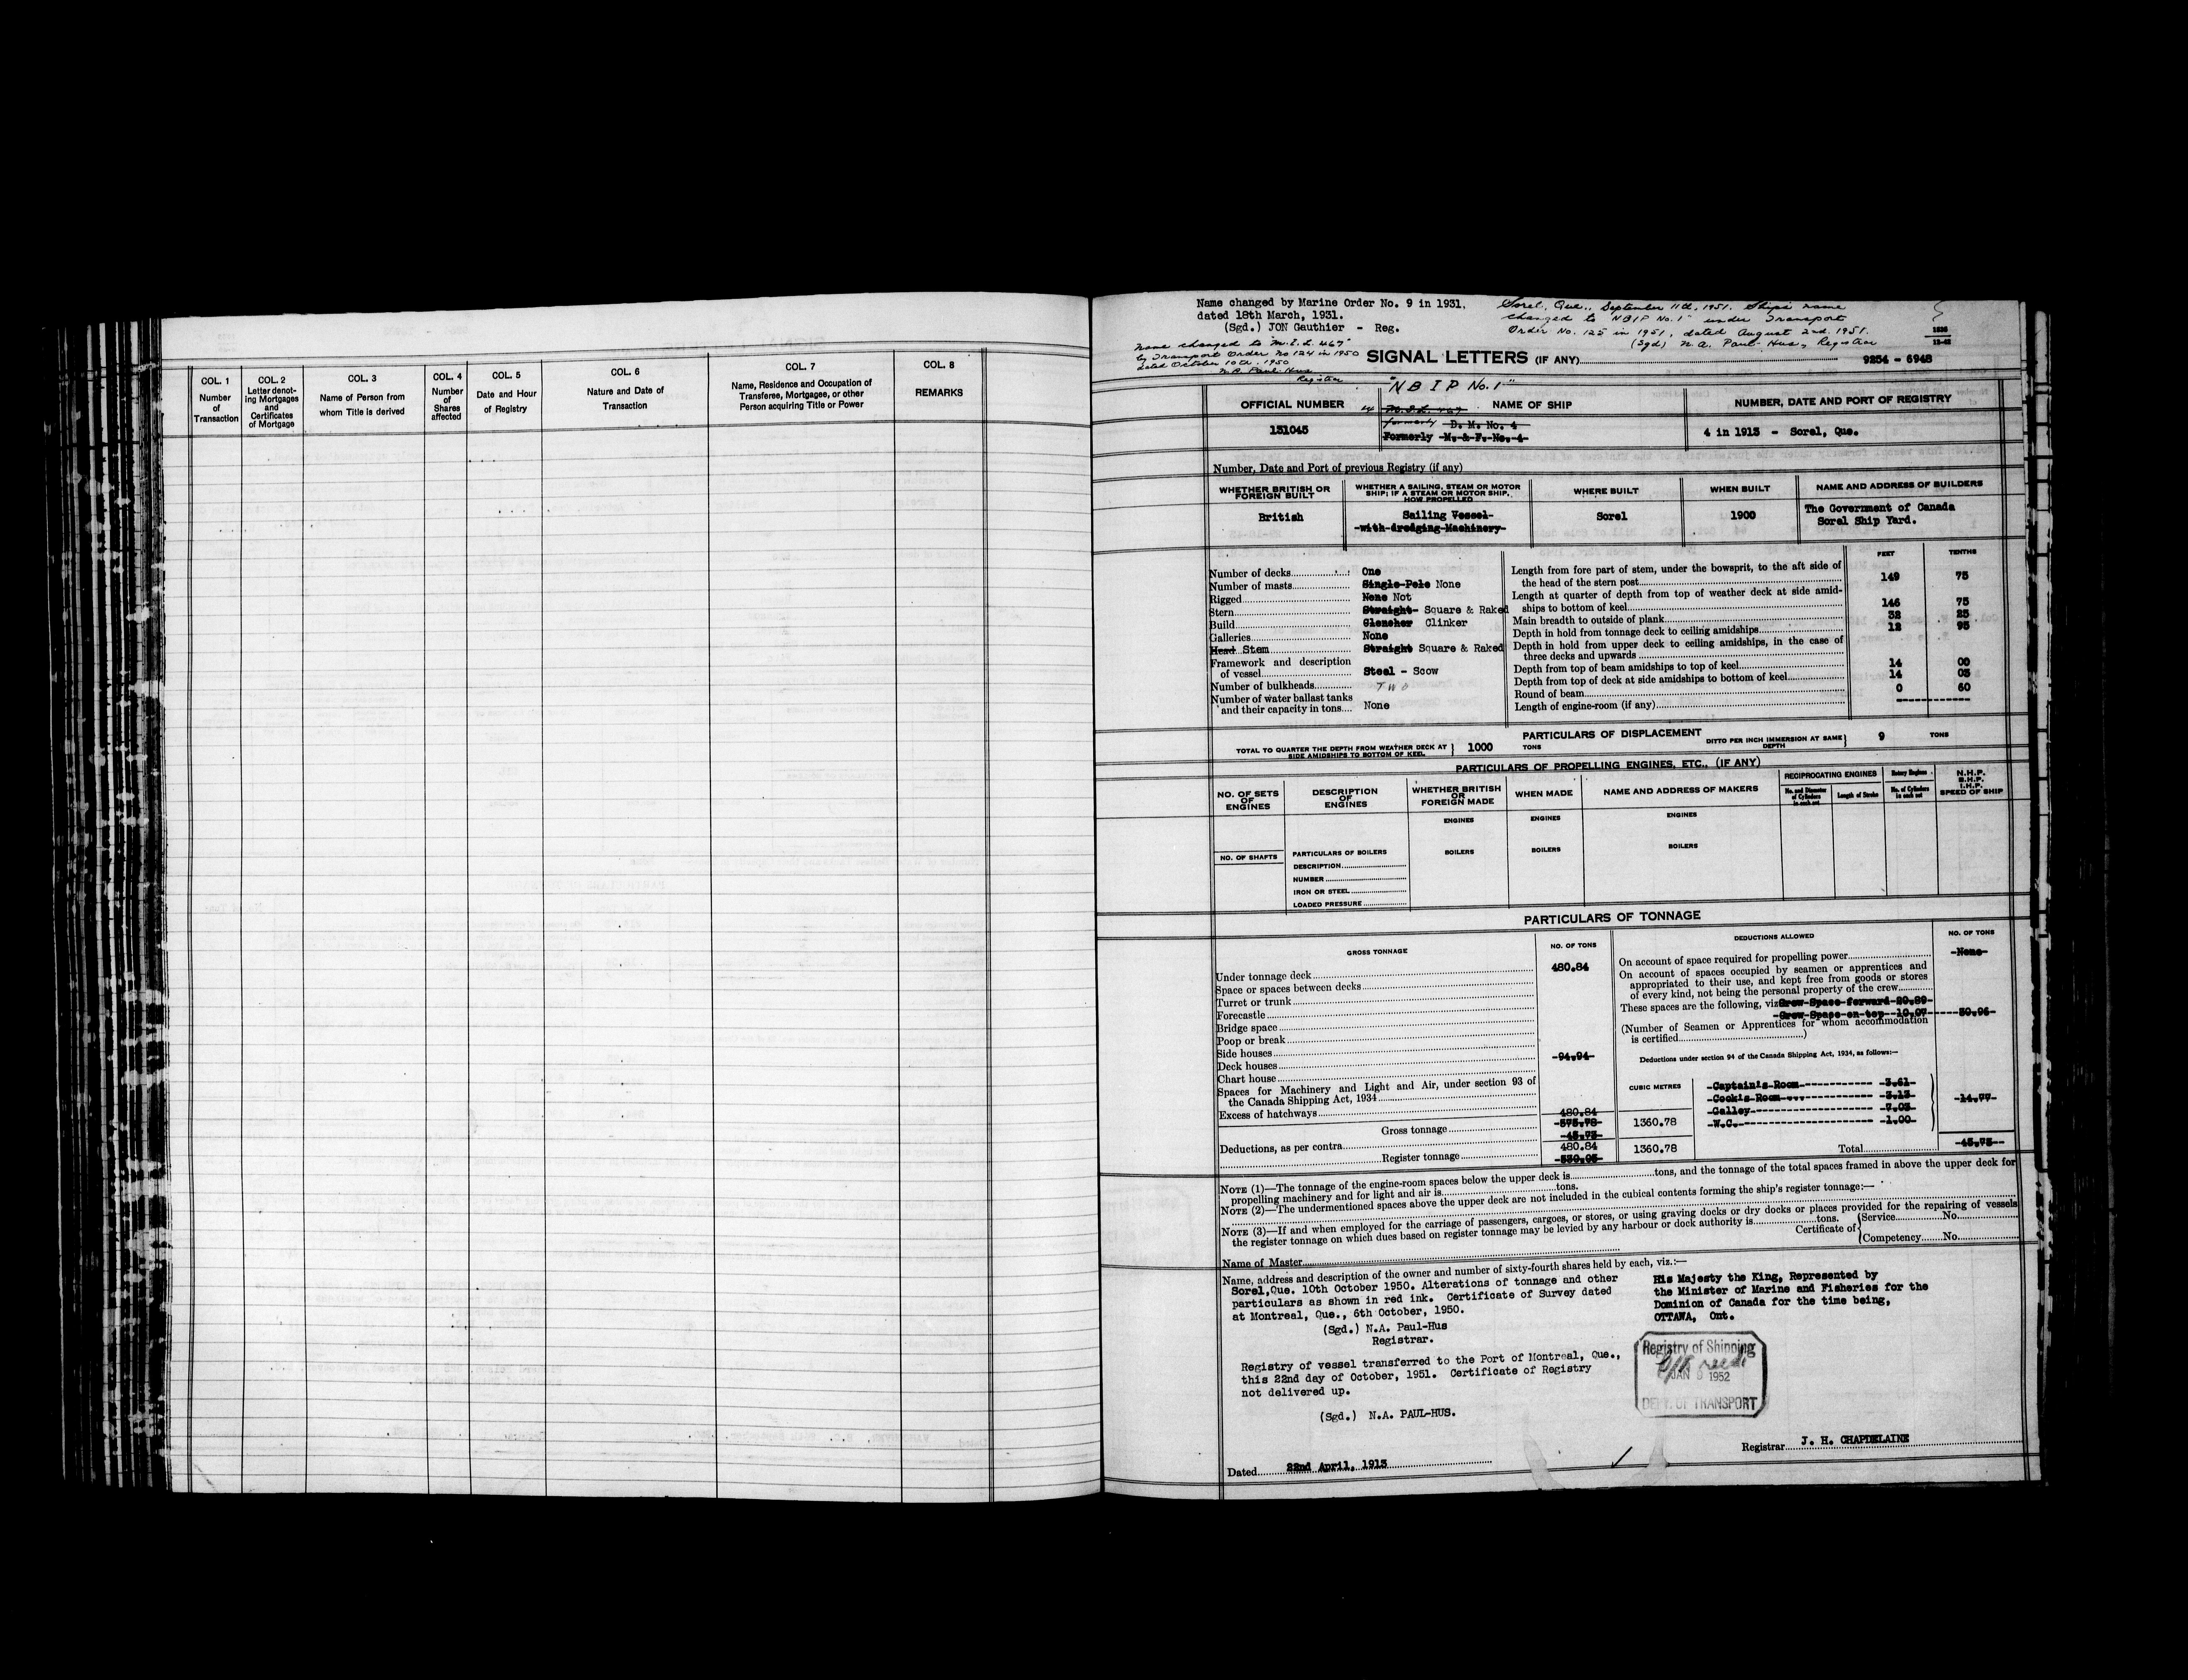 COL. 1
Number
of
Transaction
COL. 2
Letter denot-
ing Mortgages
and
Certificates
of Mortgage
COL. 3
Name of Person from
whom Title is derived
COL. 4
Number
of
Shares
affected
COL. 5
Date and Hour
of Registry
COL. 6
Nature and Date of
Transaction
COL. 7
Name, Residence and Occupation of
Transferee, Mortgagee, or other
Person acquiring Title or Power
COL. 8
REMARKS
Name changed by Marine Order No. 9 in 1931.
dated 18th March, 1931.
(Sgd.) JON Gauthier - Reg.
Sorel, Que., September 11th, 1951. Ship's name
changed to "NBIP No. 1" under Transport
Order No. 125 in 1951, dated August 2nd. 1951.
(Sgd) N. A. Paul-Hus, Registrar
Name changed to "M.I.L. 467"
by Transport Order No 124 in 1950
dated October 10th, 1950
N. A. Paul-Hus
Registrar
SIGNAL LETTERS (IF ANY)
9254 - 6948
"N B I P No. 1"
OFFICIAL NUMBER
131045
NAME OF SHIP
M.I.L. 467
formerly D. M. No. 4
Formerly M. & F. No. 4
NUMBER, DATE AND PORT OF REGISTRY
4 in 1913 - Sorel, Que.
Number, Date and Port of previous Registry (if any)
WHETHER BRITISH OR
FOREIGN BUILT
British
WHETHER A SAILING, STEAM OR MOTOR
SHIP; IF A STEAM OR MOTOR SHIP,
HOW PROPELLED
Sailing Vessel-
-with-dredging-Machinery-
WHERE BUILT
Sorel
WHEN BUILT
1900
NAME AND ADDRESS OF BUILDERS
The Government of Canada
Sorel Ship Yard.
Number of decks One
Number of masts Single-Pole None
Rigged None Not
Stern Straight- Square & Raked
Build Clencher Clinker
Galleries None
Head Stem Straight Square & Raked
Framework and description
of vessel Steel - Scow
Number of bulkheads TWO
Number of water ballast tanks
and their capacity in tons None
FEET TENTHS
Length from fore part of stem, under the bowsprit, to the aft side of
the head of the stern post 149 75
Length at quarter of depth from top of weather deck at side amid-
ships to bottom of keel 146 75
Main breadth to outside of plank 32 25
Depth in hold from tonnage deck to ceiling amidships 12 95
Depth in hold from upper deck to ceiling amidships, in the case of
three decks and upwards
Depth from top of beam amidships to top of keel 14 00
Depth from top of deck at side amidships to bottom of keel 14 03
Round of beam 0 60
Length of engine-room (if any)
PARTICULARS OF DISPLACEMENT
TOTAL TO QUARTER THE DEPTH FROM WEATHER DECK AT
SIDE AMIDSHIPS TO BOTTOM OF KEEL
1000 TONS
DITTO PER INCH IMMERSION AT SAME
DEPTH
9 TONS
PARTICULARS OF PROPELLING ENGINES, ETC., (IF ANY)
NO. OF SETS
OF
ENGINES
DESCRIPTION
OF
ENGINES
WHETHER BRITISH
OR
FOREIGN MADE
WHEN MADE
NAME AND ADDRESS OF MAKERS
RECIPROCATING ENGINES
No. and Diameter
of Cylinders
in each set
Length of Stroke
Rotary Engines
No. of Cylinders
in each set
N.H.P.
B.H.P.
I.H.P.
SPEED OF SHIP
ENGINES
ENGINES
ENGINES
NO. OF SHAFTS
PARTICULARS OF BOILERS
DESCRIPTION
NUMBER
IRON OR STEEL
LOADED PRESSURE
BOILERS
BOILERS
BOILERS
PARTICULARS OF TONNAGE
GROSS TONNAGE
NO. OF TONS
Under tonnage deck 480.84
Space or spaces between decks
Turret or trunk
Forecastle
Bridge space
Poop or break
Side houses
Deck houses -94.94-
Chart house
Spaces for Machinery and Light and Air, under section 93 of
the Canada Shipping Act, 1934
Excess of hatchways
480.84
Gross tonnage -575.78-
Deductions, as per contra -45.73-
480.84
Register tonnage -530.05-
CUBIC METRES
1360.78
1360.78
DEDUCTIONS ALLOWED
NO. OF TONS
On account of space required for propelling power -None-
On account of spaces occupied by seamen or apprentices and
appropriated to their use, and kept free from goods or stores
of every kind, not being the personal property of the crew
These spaces are the following, viz Crew-Space-forward-20.89-
-Crew-Space-on-top--10.07------30.96-
(Number of Seamen or Apprentices for whom accommodation
is certified)
Deductions under section 94 of the Canada Shipping Act, 1934, as follows:—
-Captain's-Room- -3.61-
-Cook's-Room- -3.13-
-Galley- -7.03-
-W.C.- -1.00-
-14.77-
Total -45.73-
NOTE (1)—The tonnage of the engine-room spaces below the upper deck is tons, and the tonnage of the total spaces framed in above the upper deck for
propelling machinery and for light and air is tons.
NOTE (2)—The undermentioned spaces above the upper deck are not included in the cubical contents forming the ship's register tonnage:—
NOTE (3)—If and when employed for the carriage of passengers, cargoes, or stores, or using graving docks or dry docks or places provided for the repairing of vessels
the register tonnage on which dues based on register tonnage may be levied by any harbour or dock authority is tons.
Certificate of
Service No.
Competency No.
Name of Master
Name, address and description of the owner and number of sixty-fourth shares held by each, viz.:—
Sorel,Que. 10th October 1950. Alterations of tonnage and other
particulars as shown in red ink. Certificate of Survey dated
at Montreal, Que., 6th October, 1950.
(Sgd.) N.A. Paul-Hus
Registrar.
Registry of vessel transferred to the Port of Montreal, Que.,
this 22nd day of October, 1951. Certificate of Registry
not delivered up.
(Sgd.) N.A. PAUL-HUS.
His Majesty the King, Represented by
the Minister of Marine and Fisheries for the
Dominion of Canada for the time being,
OTTAWA, Ont.
Registry of Shipping
JAN 1952
DEPT. OF TRANSPORT
Registrar J. H. CHAPDELAINE
Dated 22nd April, 1913